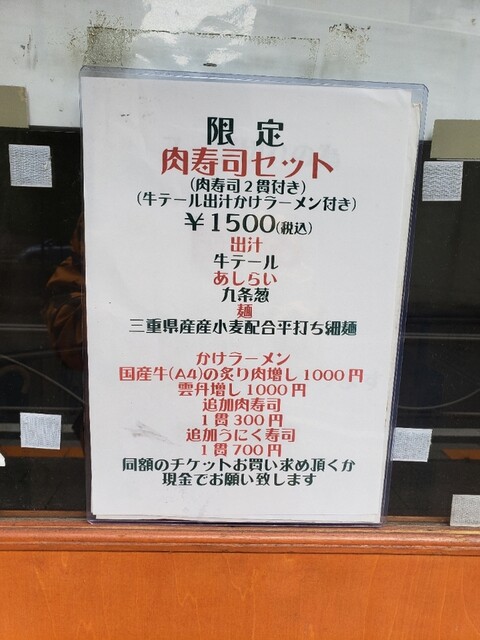 限定
肉寿司セット
(肉寿司2貫付き)
(牛テール出汁かけラーメン付き)
¥1500(税込)
出汁
牛テール
あしらい
九条葱
麺
三重県産産小麦配合平打ち細麺
かけラーメン
国産牛(A4)の炙り肉増し1000円
雲丹増し1000円
追加肉寿司
1貫300円
追加うにく寿司
1貫700円
同額のチケットお買い求め頂くか
現金でお願い致します